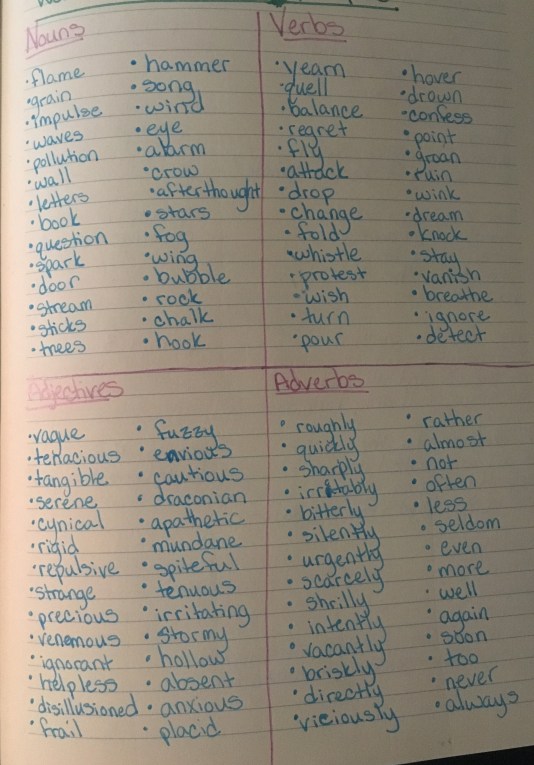 Nouns
• flame
• grain
• impulse
• waves
• pollution
• wall
• letters
• book
• question
• spark
• door
• stream
• sticks
• trees
• hammer
• song
• wind
• eye
• alarm
• crow
• afterthought
• stars
• fog
• wing
• bubble
• rock
• chalk
• hook
Verbs
• yearn
• quell
• balance
• regret
• fly
• attack
• drop
• change
• fold
• whistle
• protest
• wish
• turn
• pour
• hover
• drown
• confess
• point
• groan
• ruin
• wink
• dream
• knock
• stay
• vanish
• breathe
• ignore
• detect
Adjectives
• vague
• tenacious
• tangible
• serene
• cynical
• rigid
• repulsive
• strange
• precious
• venemous
• ignorant
• helpless
• disillusioned
• frail
• fuzzy
• envious
• cautious
• draconian
• apathetic
• mundane
• spiteful
• tenuous
• irritating
• stormy
• hollow
• absent
• anxious
• placid
Adverbs
• roughly
• quickly
• sharply
• irritably
• bitterly
• silently
• urgently
• scarcely
• shrilly
• intently
• vacantly
• briskly
• directly
• viciously
• rather
• almost
• not
• often
• less
• seldom
• even
• more
• well
• again
• soon
• too
• never
• always